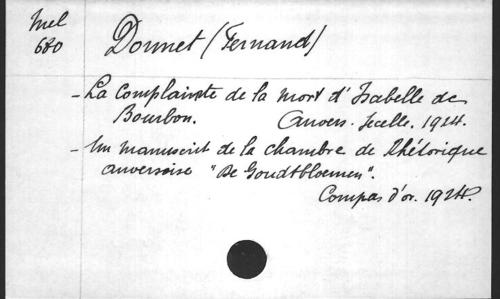 Mel
680
Donnet (Fernand)
- La Complainte de la mort d'Isabelle de
Bourbon. Anvers. Secelle. 1924.
- Un manuscrit de la chambre de Rhétorique
anversoise "De Goudtbloemen".
Compas d'or. 1924.